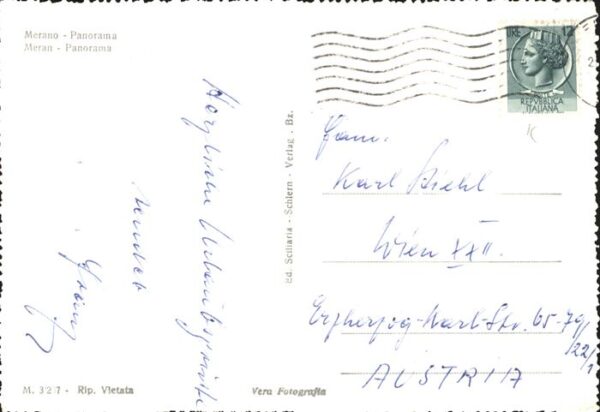 Merano - Panorama
Meran - Panorama
Herzliche Urlaubsgrüße
sendet
Franz
M. 327 - Rip. Vietata
Vera Fotografia
Ed. Sciliaria - Schlern - Verlag - Bz.
LIRE 12
REPVBBLICA
ITALIANA
Fam.
Karl Diehl
Wien XXII.
Erzherzog-Karl-Str. 65-79/
22/1
AUSTRIA